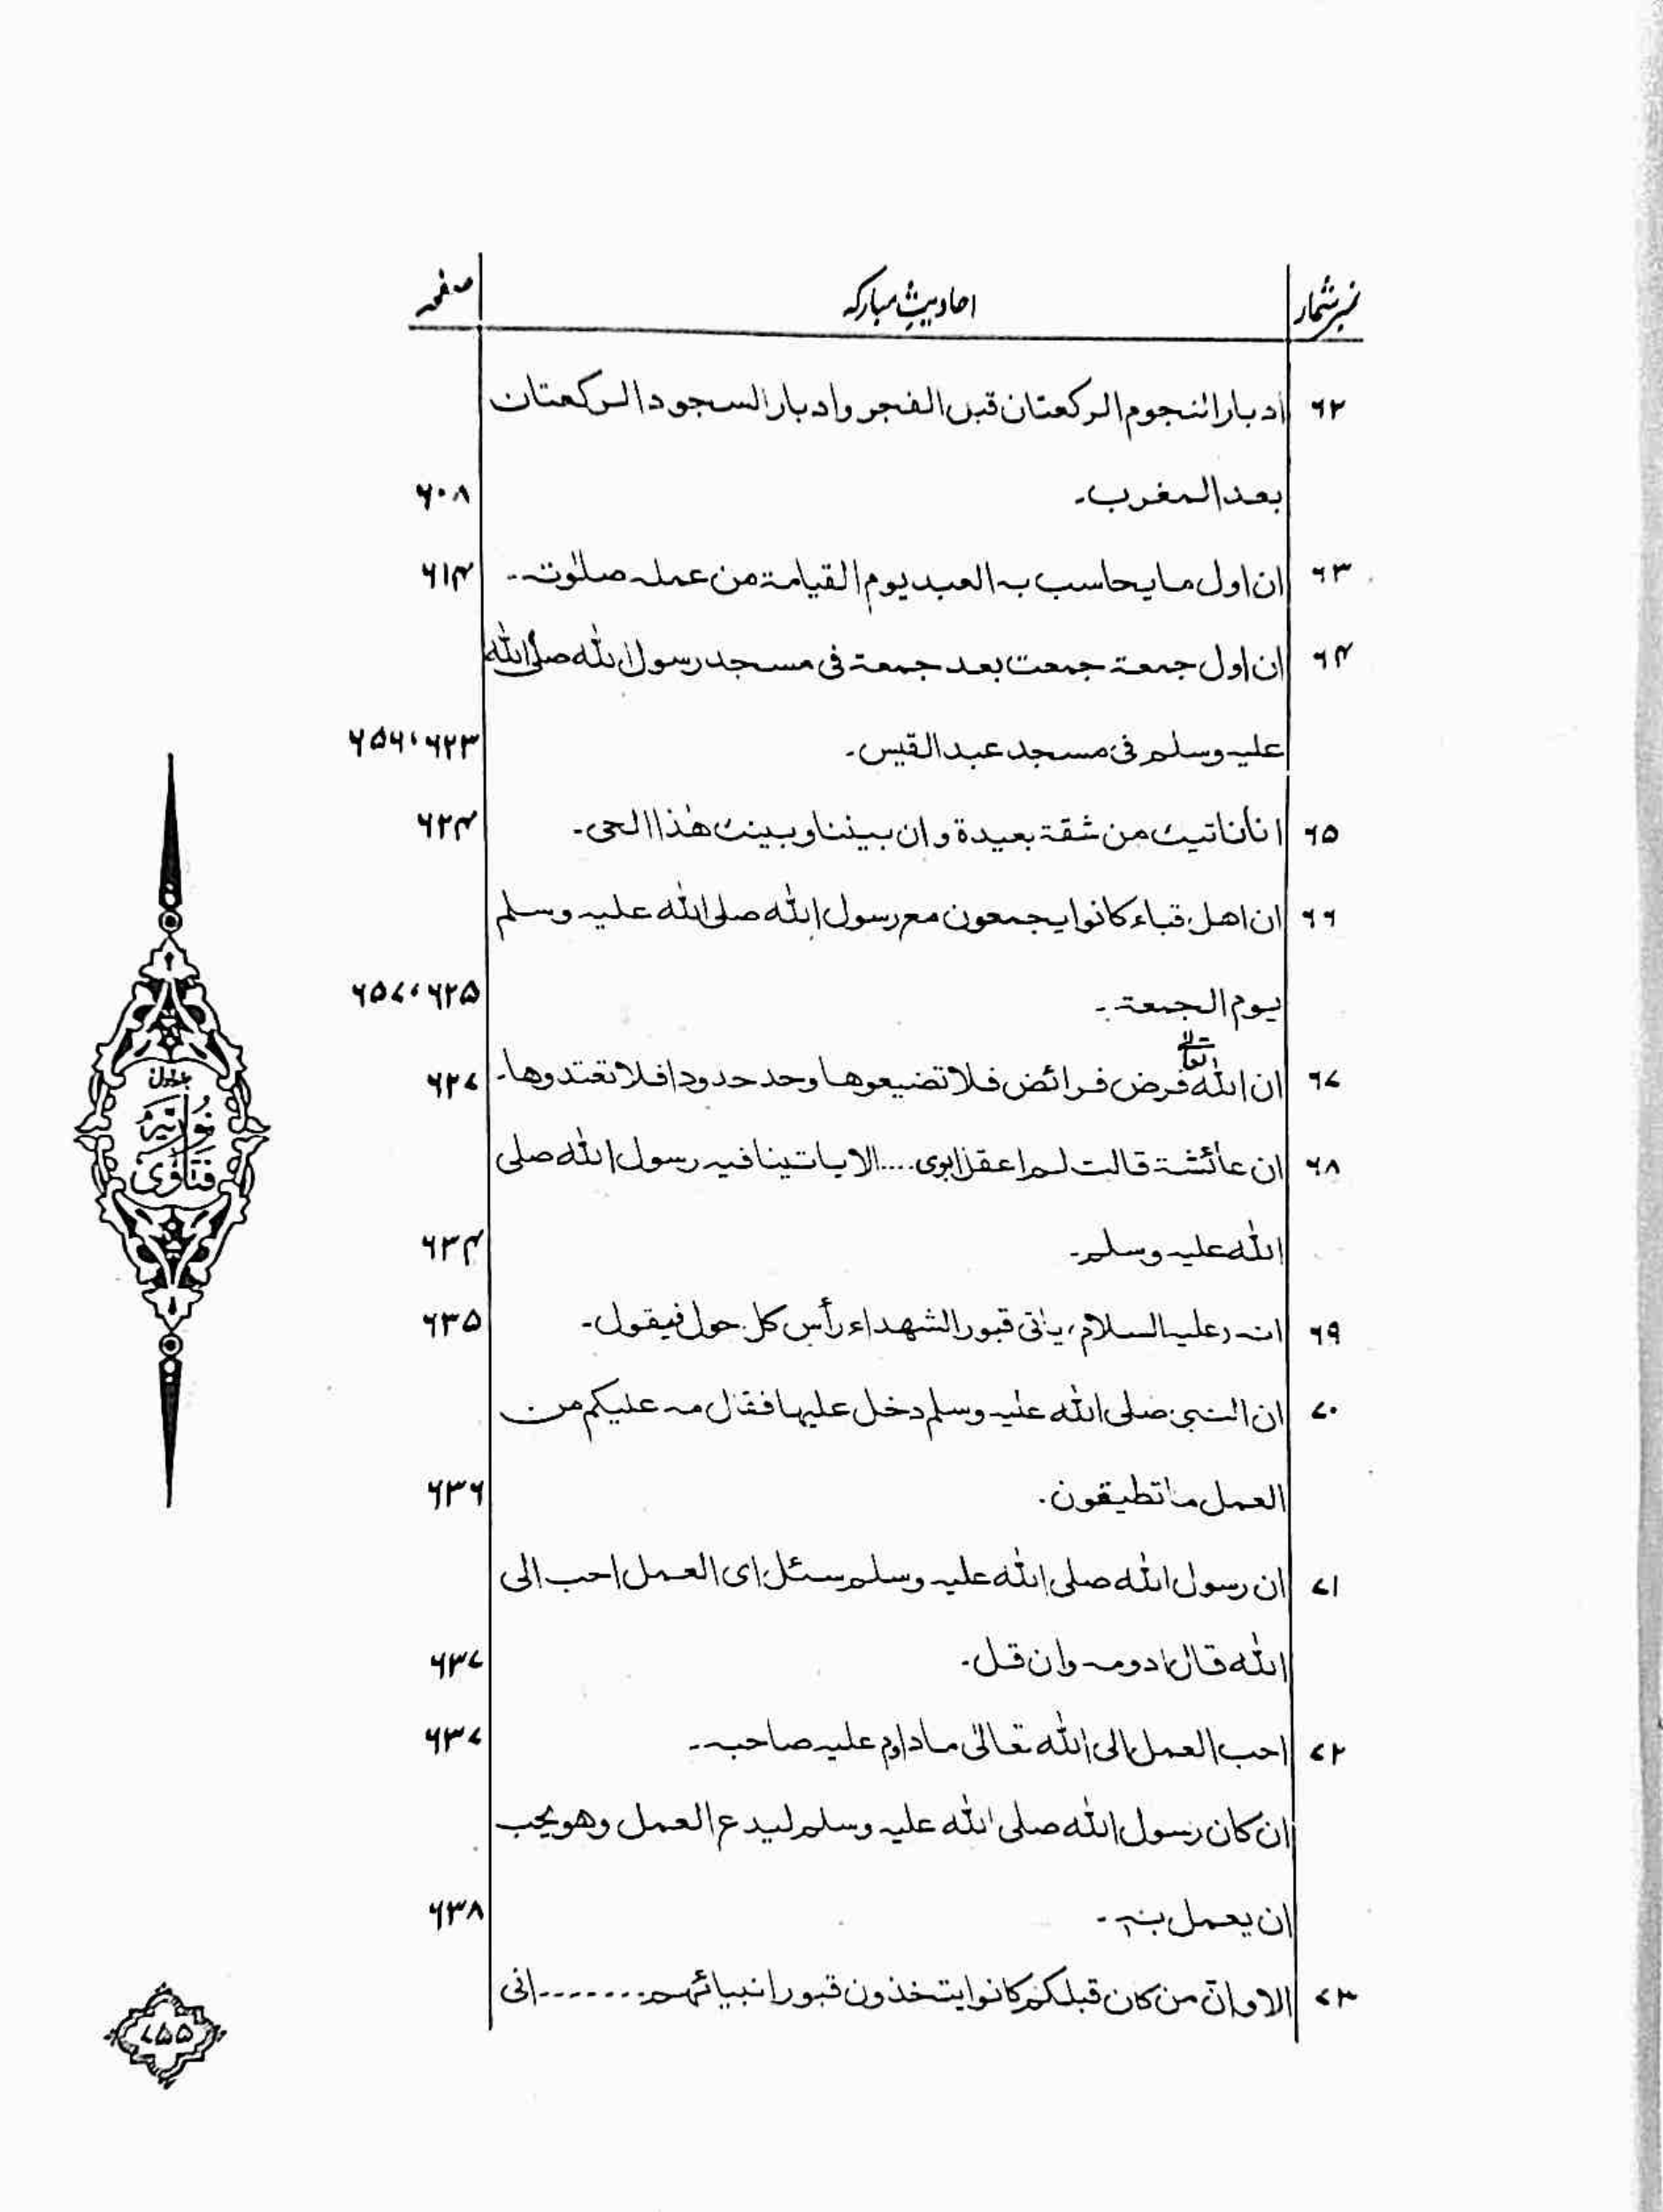 نمبرشمار احادیثِ مبارکہ صفحہ
۶۲ ادبار النجوم الرکعتان قبل الفجر وادبار السجود الرکعتان
بعد المغرب۔ ۶۰۸
۶۳ ان اول ما یحاسب بہ العبد یوم القیامۃ من عملہ صلٰوتہ۔ ۶۱۴
۶۴ ان اول جمعۃ جمعت بعد جمعۃ فی مسجد رسول اللہ صلی اللہ
علیہ وسلم فی مسجد عبد القیس۔ ۶۲۳، ۶۵۶
۶۵ انا ناتیک من شقۃ بعیدۃ وان بیننا وبینک ھٰذا الحی۔ ۶۲۴
۶۶ ان اھل قباء کانوا یجمعون مع رسول اللہ صلی اللہ علیہ وسلم
یوم الجمعۃ۔ ۶۲۵، ۶۵۷
۶۷ ان اللہ تعالٰی فرض فرائض فلا تضیعوھا وحد حدودا فلا تعتدوھا۔ ۶۲۷
۶۸ ان عائشۃ قالت لم اعقل ابوی.... الا یاتینا فیہ رسول اللہ صلی
اللہ علیہ وسلم۔ ۶۳۴
۶۹ انہ (علیہ السلام) یاتی قبور الشھداء رأس کل حول فیقول۔ ۶۳۵
۷۰ ان النبی صلی اللہ علیہ وسلم دخل علیھا فقال مہ علیکم من
العمل ما تطیقون۔ ۶۳۶
۷۱ ان رسول اللہ صلی اللہ علیہ وسلم سئل ای العمل احب الی
اللہ قال ادومہ وان قل۔ ۶۳۷
۷۲ احب العمل الی اللہ تعالٰی ما داوم علیہ صاحبہ۔ ۶۳۷
ان کان رسول اللہ صلی اللہ علیہ وسلم لیدع العمل وھو یحب
ان یعمل بہ۔ ۶۳۸
۷۳ الا وان من کان قبلکم کانوا یتخذون قبور انبیائھم........ انی
فتاوٰی نوریہ
۷۵۵